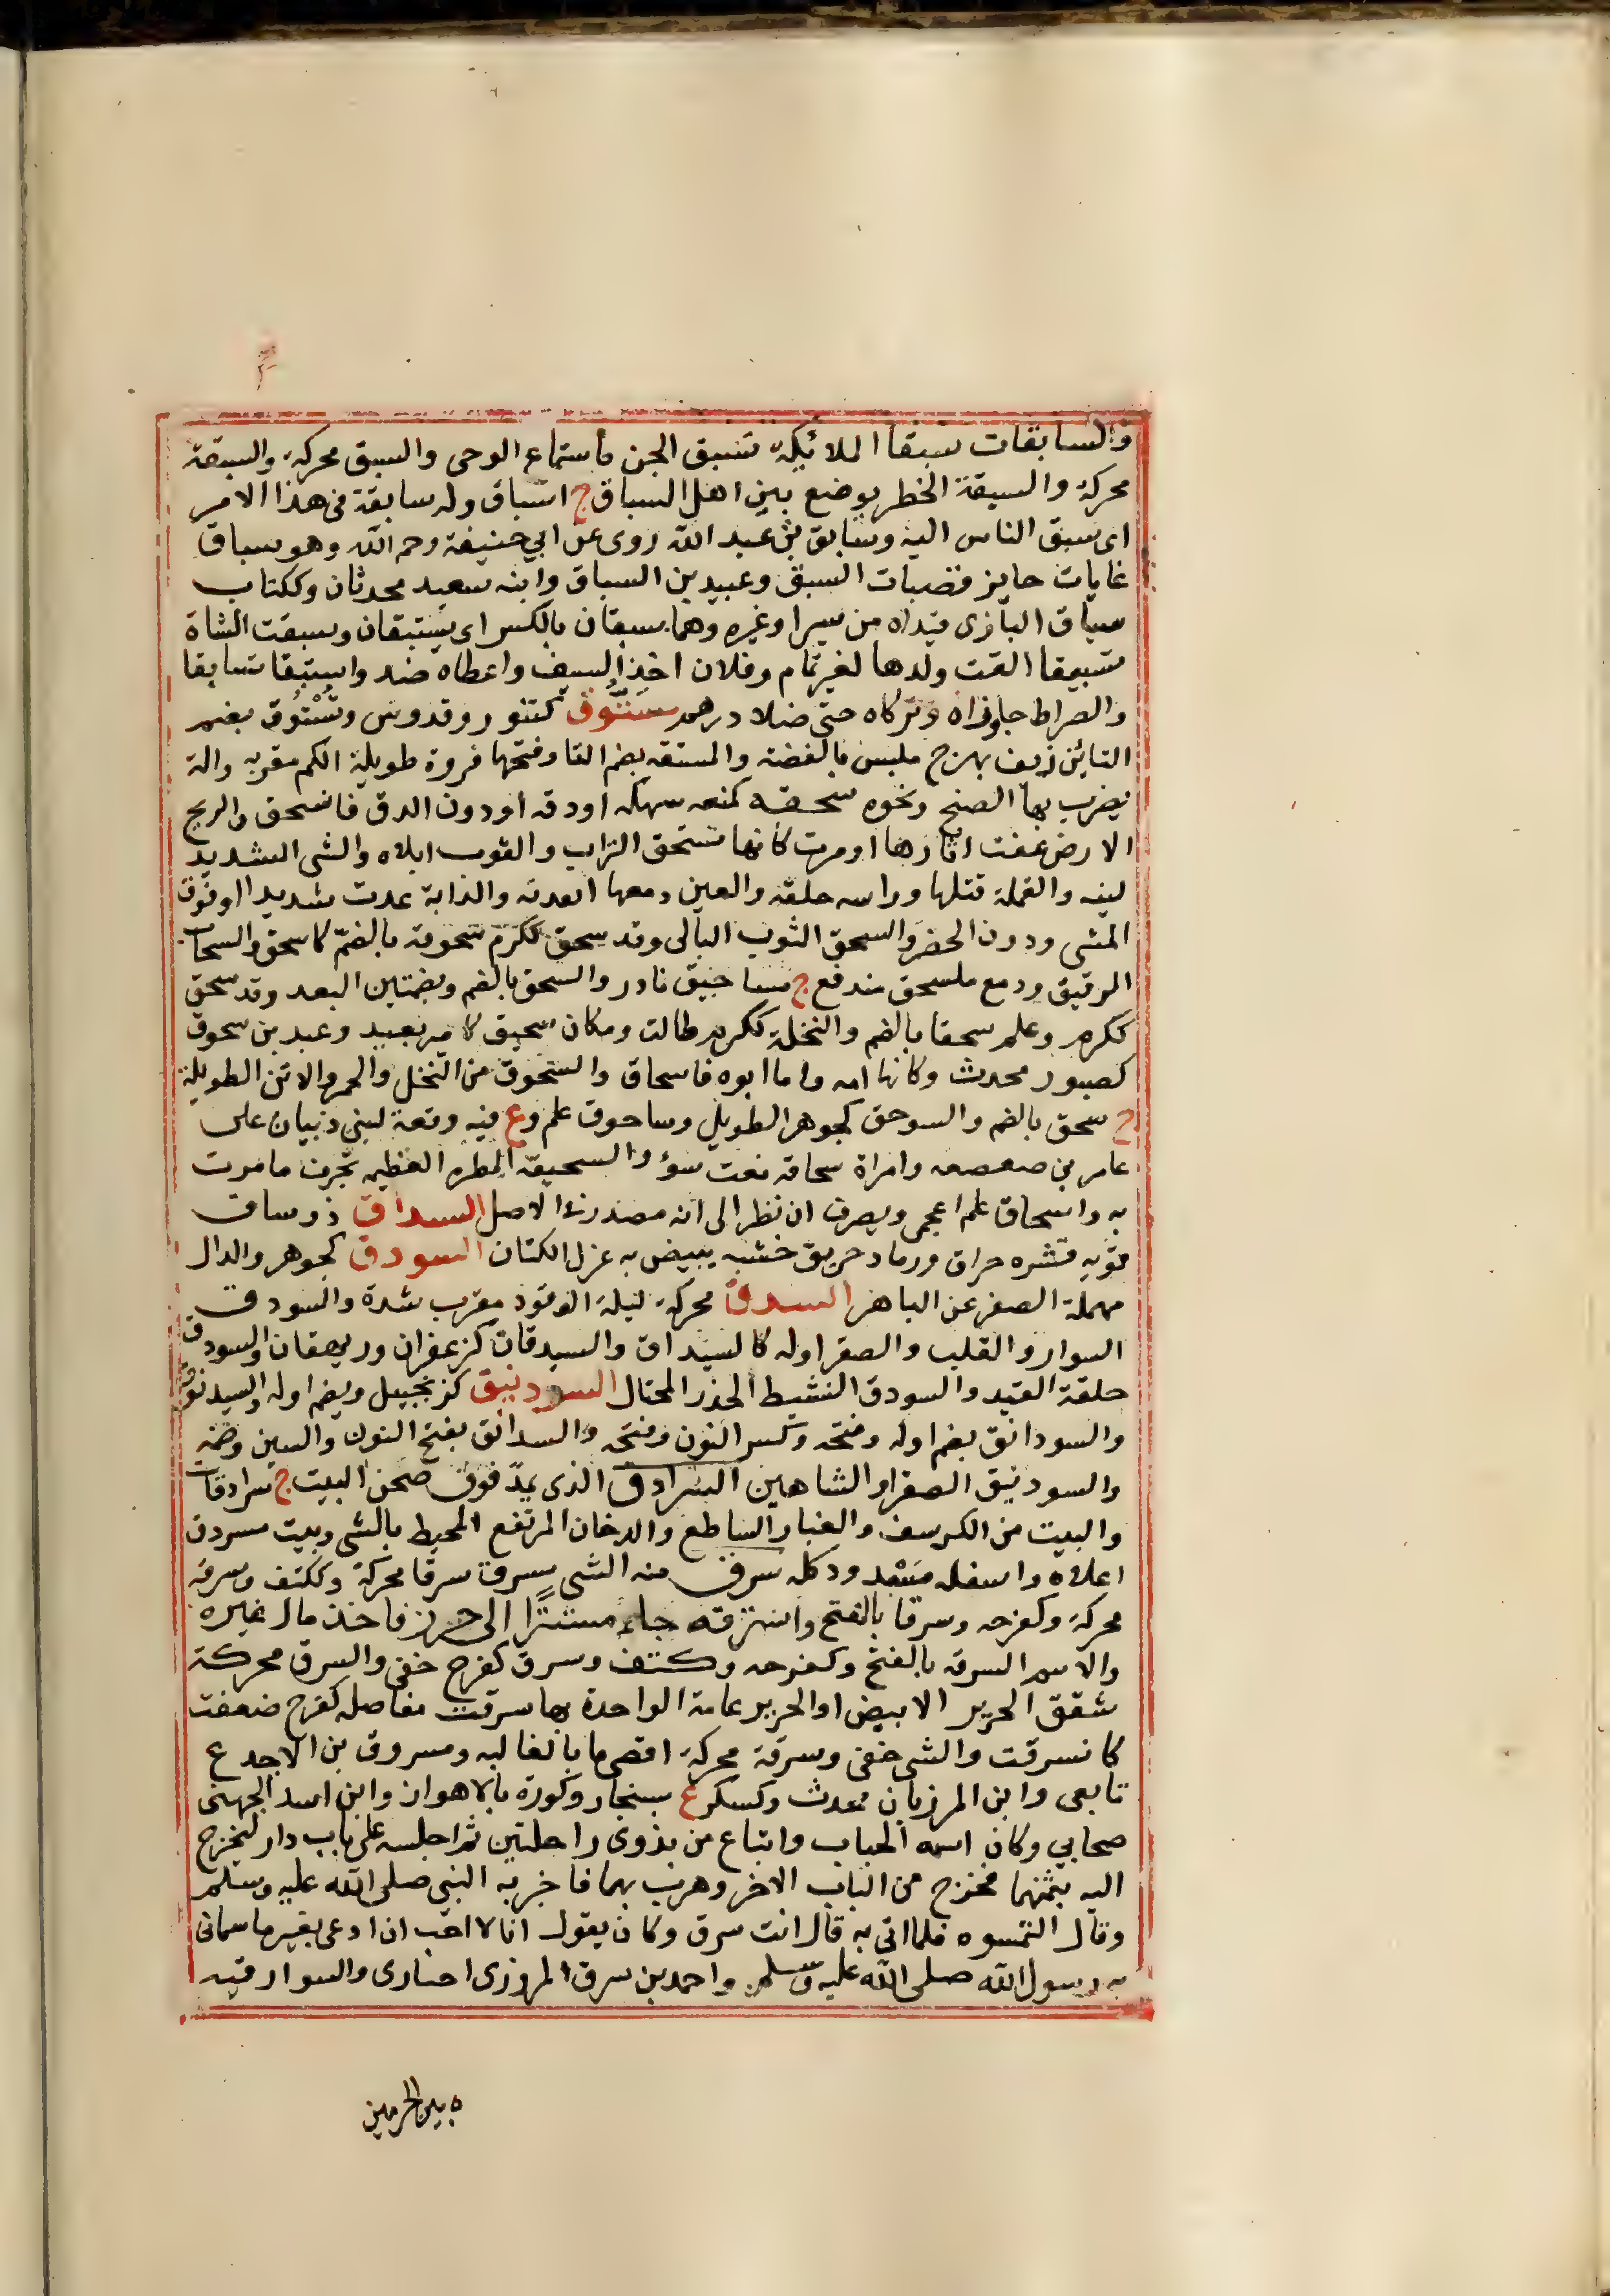 والسابقات سبقا الملائكة تسبق الجن باستماع الوحى والسبق محركة والسبقة
محركة والسبقة الخطر يوضع بين اهل السباق ج اسباق وله سابقة فى هذا الامر
اى سبق الناس اليه وسابق بن عبد الله روى عن ابي حنيفة رحم الله وهو سباق
غايات حايز قصبات السبق وعبيد بن السباق وابنه سعيد محدثان وككتاب
سباق البازى قيداه من سيرا وغيره وهما سبقان بالكسر اى يستبقان وسبقت الشاة
تسبيقا القت ولدها لغير تمام وفلان اخذ السبق واعطاه ضد واستبقا تسابقا
والصراط جاوزاه وتركاه حتى ضلا درهم ستوق كتنور وقدوس وتستوق بضم
التائين زيف بهرج ملبس بالفضة والمستقه بضم التا وفتحها فروة طويلة الكم معربه والة
يضرب بها الصنج ونحوه سحقه كمنعه سهكه او دقه او دون الدق فانسحق والريح
الارض عفت اثارها او مرت كانها تسحق التراب والثوب ابلاه والشى الشديد
لينه والقملة قتلها وراسه حلقه والعين دمعها انفدته والدابة عدت شديدا او فوق
المشى ودون الحضر والسحق الثوب البالى وقد سحق ككرم سحوقة بالضم كاسحق والسحاب
الرقيق ودمع منسحق مندفع ج مساحيق نادر والسحق بالضم وبضمتين البعد وقد سحق
ككرم وعلم سحقا بالضم والنخلة ككرم طالت ومكان سحيق كامير بعيد وعبد بن سحوق
كصبور محدث وكانها امه واما ابوه فاسحاق والسحوق من النخل والحمر والاتن الطويلة
ج سحق بالضم والسوحق كجوهر الطويل وساحوق علم وع فيه وقعة لبنى ذبيان على
عامر بن صعصعه وامراة سحاقة نعت سوء والسحيقة المطره العظيمه تجرف ما مرت
به واسحاق علم اعجمى ويصرف ان نظر الى انه مصدر فى الاصل السداق ذو ساق
قويه قشره حراق ورماد حريق خشبه يبيض به غزل الكتان السودق كجوهر والدال
مهملة الصقر عن الباهر السدق محركة ليلة الوقود معرب شدة والسودق
السوار والقلب والصقر اوله كالسيداق والسيدقان كزعفران وريهقان والسودق
حلقة القيد والسودق النشيط الحذر المحتال السودنيق كزنجبيل ويضم اوله والسيدنوق
والسودانق بضم اوله وفتحه وكسر النون وفتحه والسدانق بفتح النون والسين وضمه
والسودنيق الصقر او الشاهين السرادق الذى يمد فوق صحن البيت ج سرادقات
والبيت من الكرسف والغبار الساطع والدخان المرتفع المحيط بالشى وبيت مسردق
اعلاه واسفله مشدود كله سرق منه الشى يسرق سرقا محركة وككتف وسرقة
محركة وكفرحه وسرقا بالفتح واسترقه جاء مستترا الى حرز فاخذ مال غيره
والاسم السرقه بالفتح وكفرحه وكتف وسرق كفرح خفى والسرق محركة
شقق الحرير الابيض او الحرير عامة الواحدة بها سرقت مفاصله كفرح ضعفت
كانسرقت والشى خفى وسرقة محركة اقصى ما بالغالبه ومسروق بن الاجدع
تابعى وابن المرزبان محدث وكسكر ع بسنجار وكورة بالاهواز وابن اسد الجهنى
صحابي وكان اسمه الحباب وابتاع من بدوى راحلتين ثم اجلسه على باب دار ليخرج
اليه بثمنهما فخرج من الباب الاخر وهرب بهما فاخبر به النبى صلى الله عليه وسلم
وقال التمسوه فلما اتى به قال انت سرق وكان يقول انا لا احب ان ادعى بغير ما سمانى
به رسول الله صلى الله عليه وسلم واحمد بن سرق المروزى اخبارى والسوارقيه
ه بين الحرمين